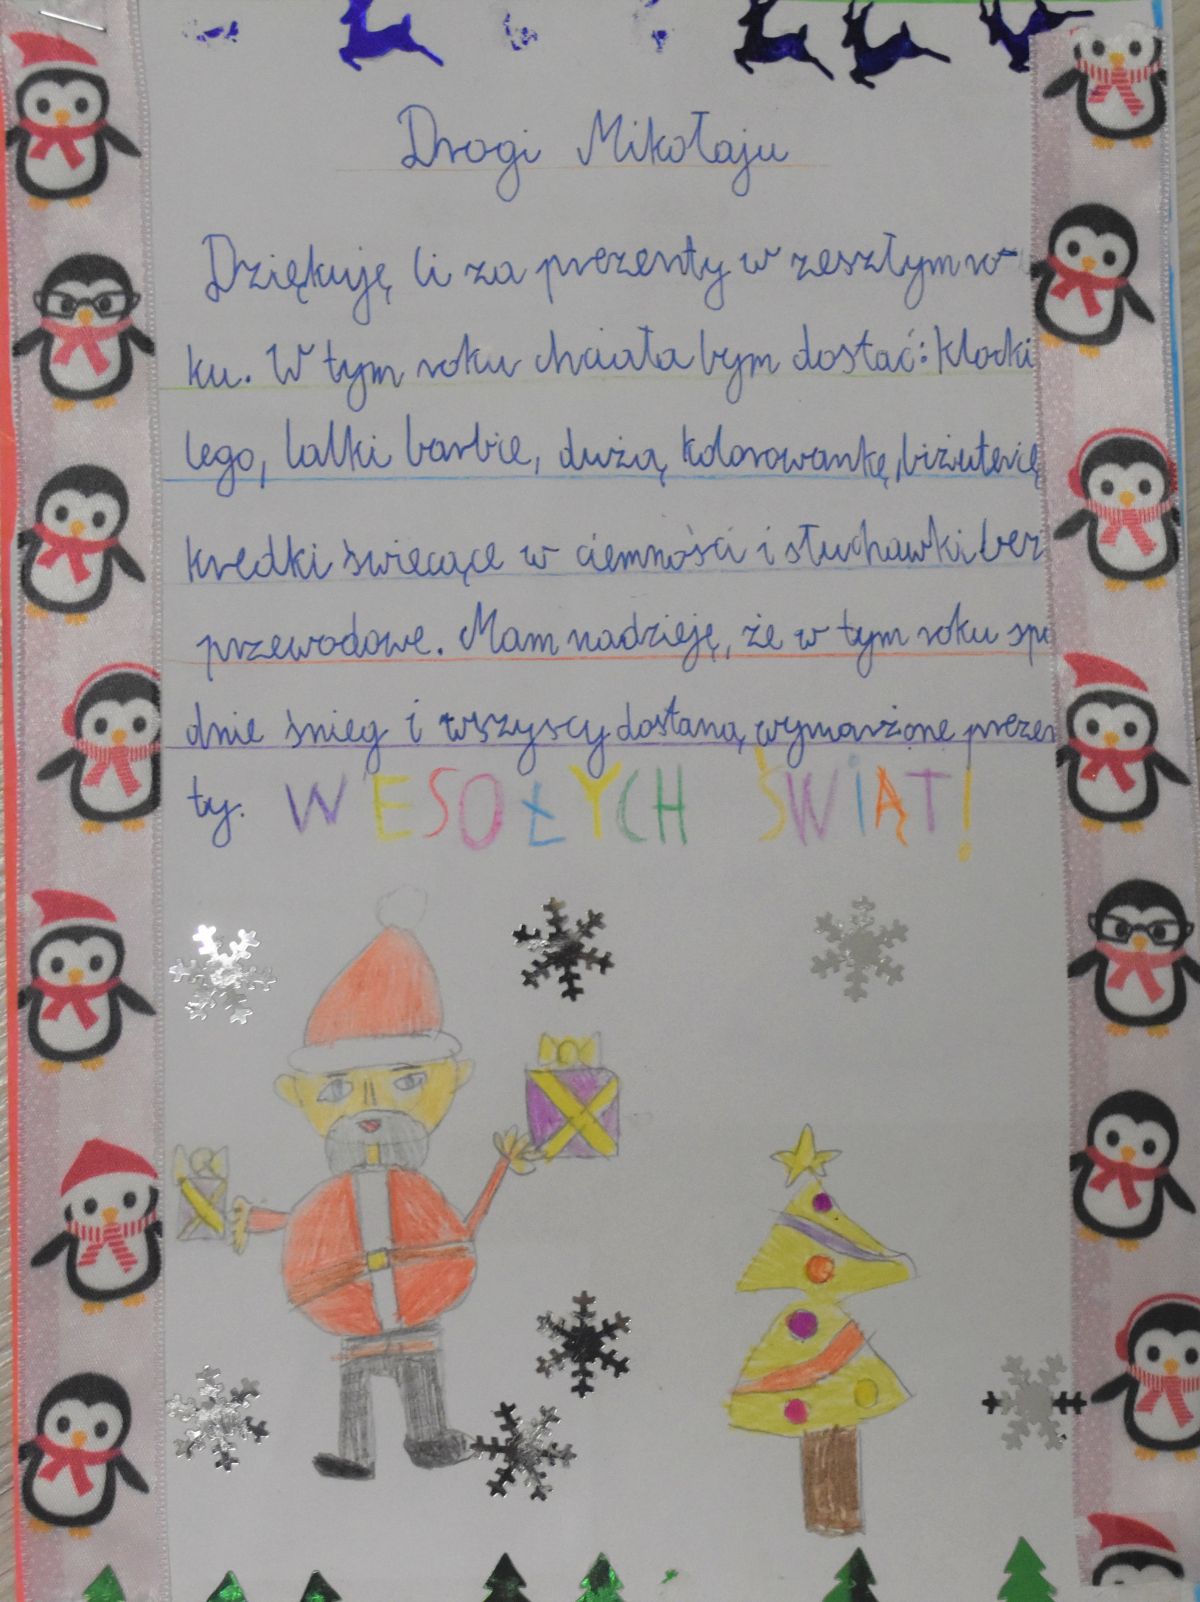 Drogi Mikołaju
Dziękuję Ci za prezenty w zeszłym ro-
ku. W tym roku chciała bym dostać: klocki
lego, lalki barbie, dużą kolorowankę, biżuterię
kredki świecące w ciemności i słuchawki bez
przewodowe. Mam nadzieję, że w tym roku spa
dnie śnieg i wszyscy dostaną wymarzone prezen
ty. WESOŁYCH ŚWIĄT!